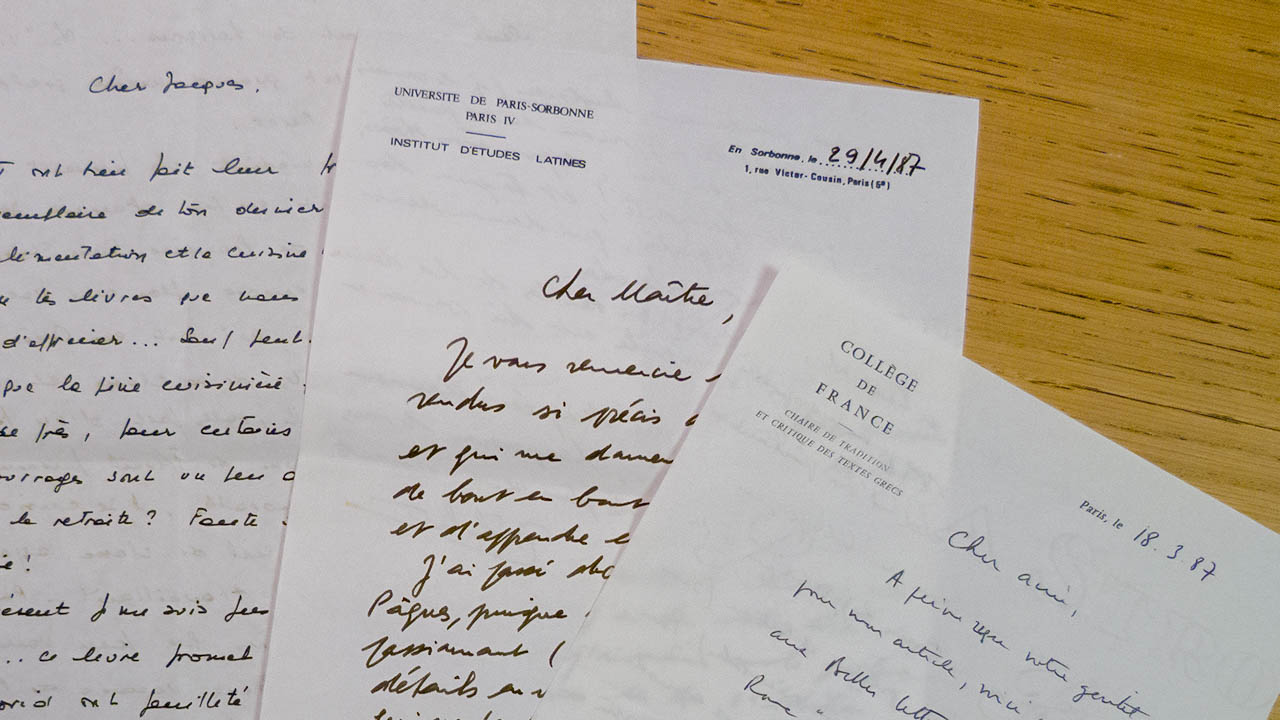 Cher Jacques.
ont bien fait leur
de ton dernier
limentation et la cuisine
les livres que nous
d'apprécier... Sauf peut
que la fine cuisinière
près, pour certains
uvrages sont un peu
la retraite? Faute
!
ésent je me suis
... ce livre promet
ont feuilleté
UNIVERSITE DE PARIS-SORBONNE
PARIS IV
INSTITUT D'ETUDES LATINES
En Sorbonne, le 29/4/87
1, rue Victor-Cousin, Paris (5e)
Cher Maître,
Je vous remercie
rendus si précis
et qui me donnent
de bout en bout
et d'apprendre
J'ai passé
Pâques, puisque
passionnant (
détails
COLLÈGE
DE
FRANCE
CHAIRE DE TRADITION
ET CRITIQUE DES TEXTES GRECS
Paris, le 18.3.87
Cher ami,
A peine reçu votre gentil
pour mon article, voici
aux Belles Lett